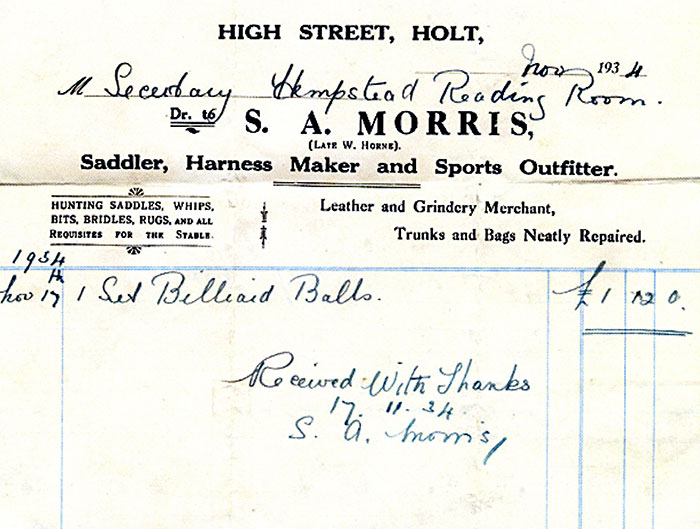 HIGH STREET, HOLT,
Nov 1934
M Secretary Hempstead Reading Room.
Dr. to S. A. MORRIS,
(LATE W. HORNE).
Saddler, Harness Maker and Sports Outfitter.
HUNTING SADDLES, WHIPS,
BITS, BRIDLES, RUGS, AND ALL
REQUISITES FOR THE STABLE.
Leather and Grindery Merchant,
Trunks and Bags Neatly Repaired.
1934
Nov 17th 1 Set Billiard Balls. £1 12 0.
Received With Thanks
17. 11. 34.
S. A. Morris,